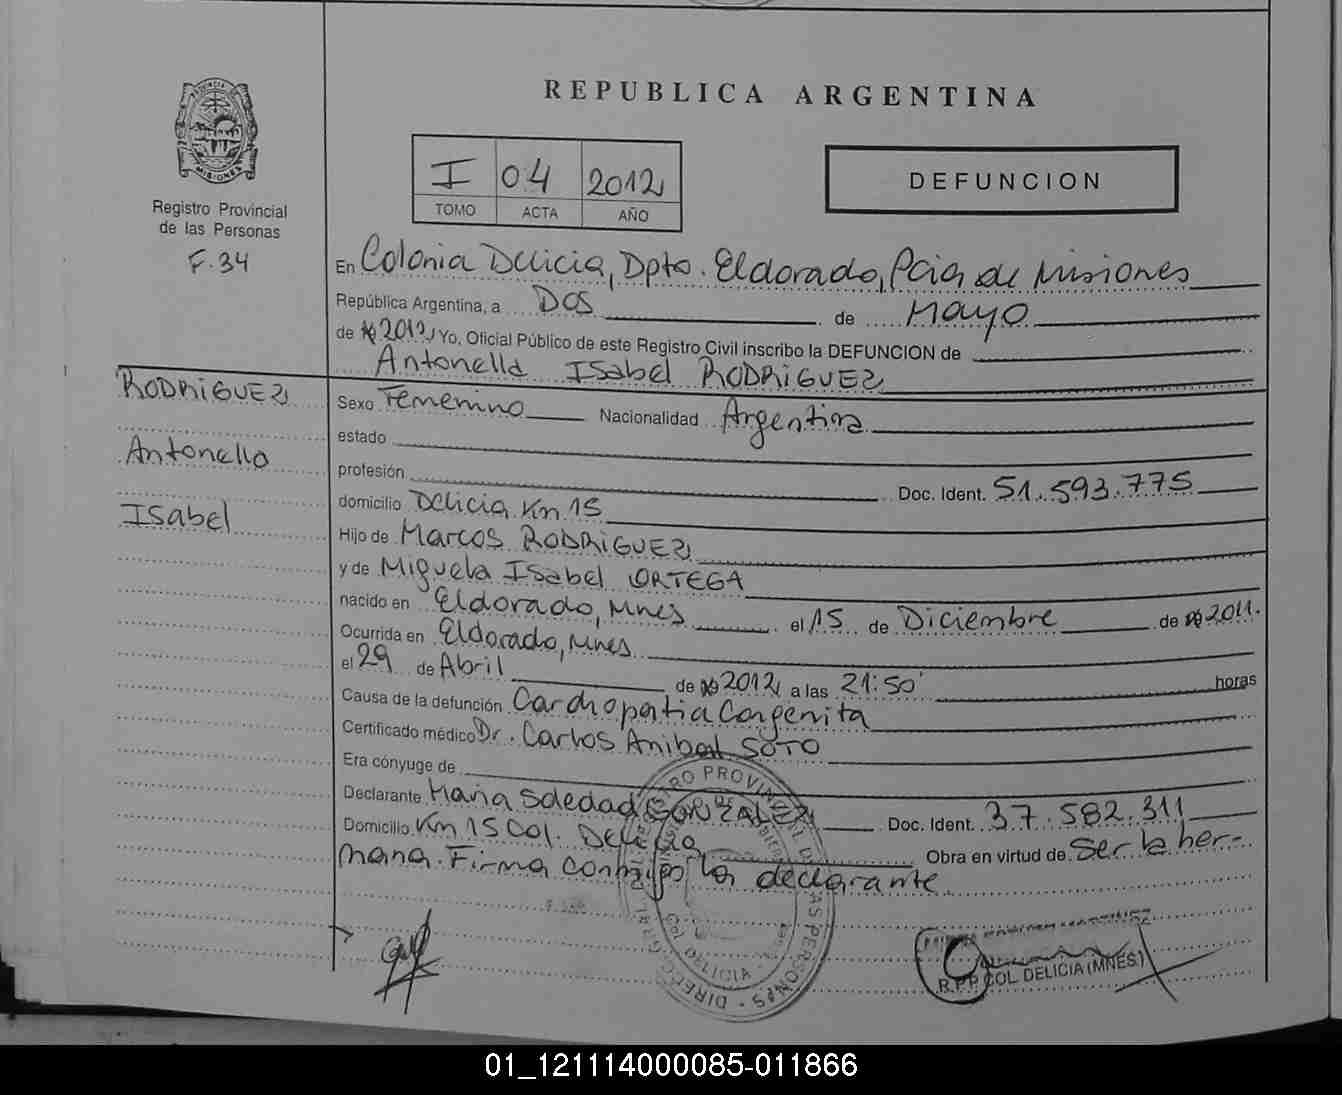 REPUBLICA ARGENTINA
I 04 2012
TOMO ACTA AÑO
DEFUNCION
PROVINCIA DE MISIONES
Registro Provincial
de las Personas
F.34
En Colonia Delicia, Dpto. Eldorado, Pcia de Misiones
República Argentina, a Dos de Mayo
de 2012 Yo, Oficial Público de este Registro Civil inscribo la DEFUNCION de
Antonella Isabel RODRIGUEZ
RODRIGUEZ
Antonella
Isabel
Sexo Femenino Nacionalidad Argentina
estado
profesión Doc. Ident. 51.593.775
domicilio Delicia Km 15
Hijo de Marcos RODRIGUEZ
y de Miguela Isabel ORTEGA
nacido en Eldorado, Mnes el 15 de Diciembre de 2011.
Ocurrida en Eldorado, Mnes
el 29 de Abril de 2012 a las 21:50 horas
Causa de la defunción Cardiopatia Congenita
Certificado médico Dr. Carlos Anibal SOTO
Era cónyuge de
Declarante Maria Soledad GONZALEZ Doc. Ident. 37.582.311
Domicilio Km 15 Col. Delicia Obra en virtud de Ser la her-
mana. Firma conmigo la declarante
R.P.P. COL. DELICIA (MNES.)
01_121114000085-011866